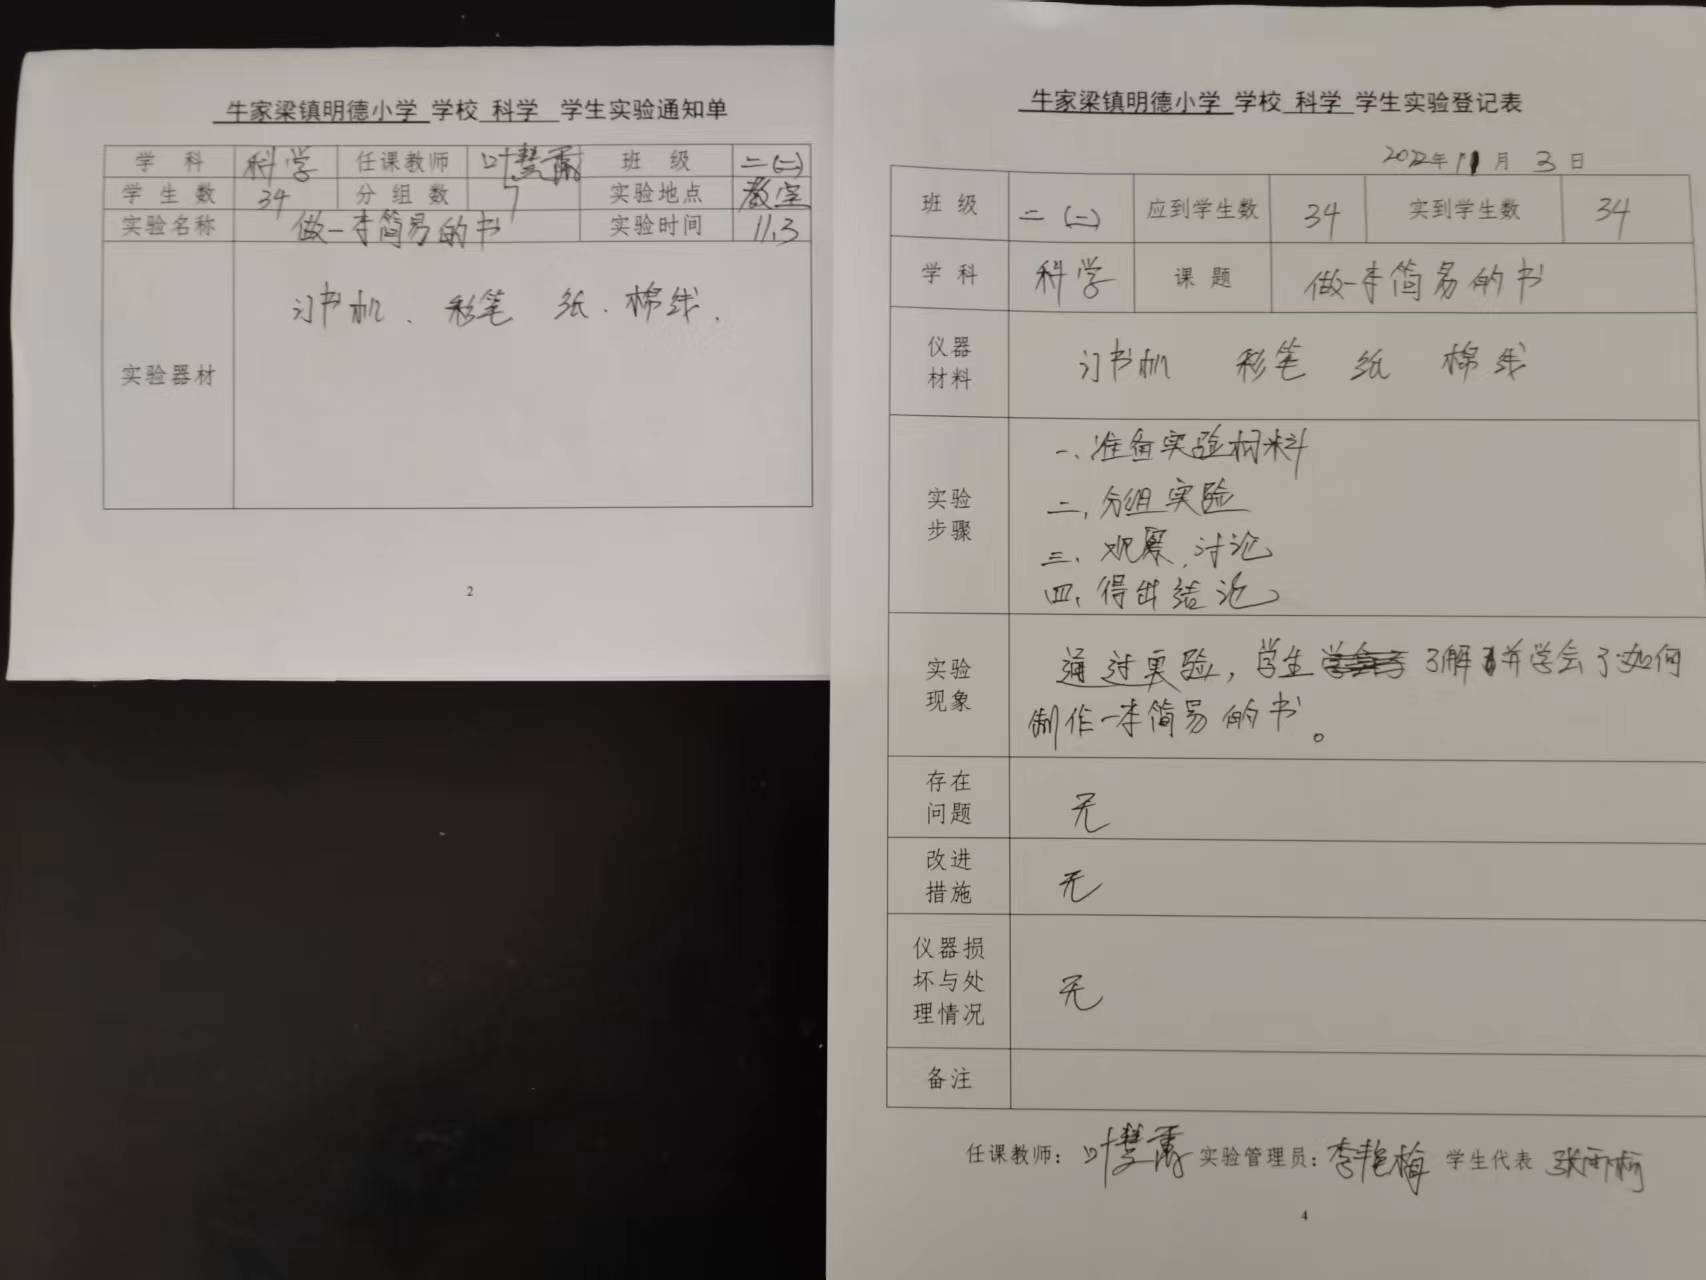 牛家梁镇明德小学 学校 科学 学生实验通知单
学 科 科学 任课教师 叶慧 班 级 二(二)
学 生 数 34 分 组 数 7 实验地点 教室
实验名称 做一本简易的书 实验时间 11.3
实验器材 订书机、彩笔 纸.棉线.
2
牛家梁镇明德小学 学校 科学 学生实验登记表
2022年 11 月 3 日
班 级 二(二) 应到学生数 34 实到学生数 34
学 科 科学 课 题 做一本简易的书
仪器
材料
订书机 彩笔 纸 棉线
实验
步骤
一、准备实验材料
二、分组实验
三、观察、讨论
四、得出结论
实验
现象
通过实验，学生 了解并学会了如何
制作一本简易的书。
存在
问题
无
改进
措施
无
仪器损
坏与处
理情况
无
备注
任课教师： 叶慧 实验管理员：李艳梅 学生代表 张雨
4